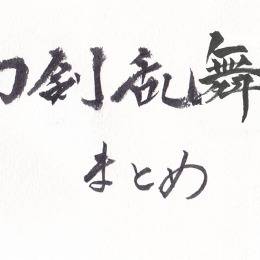 刀剣乱舞
まとめ